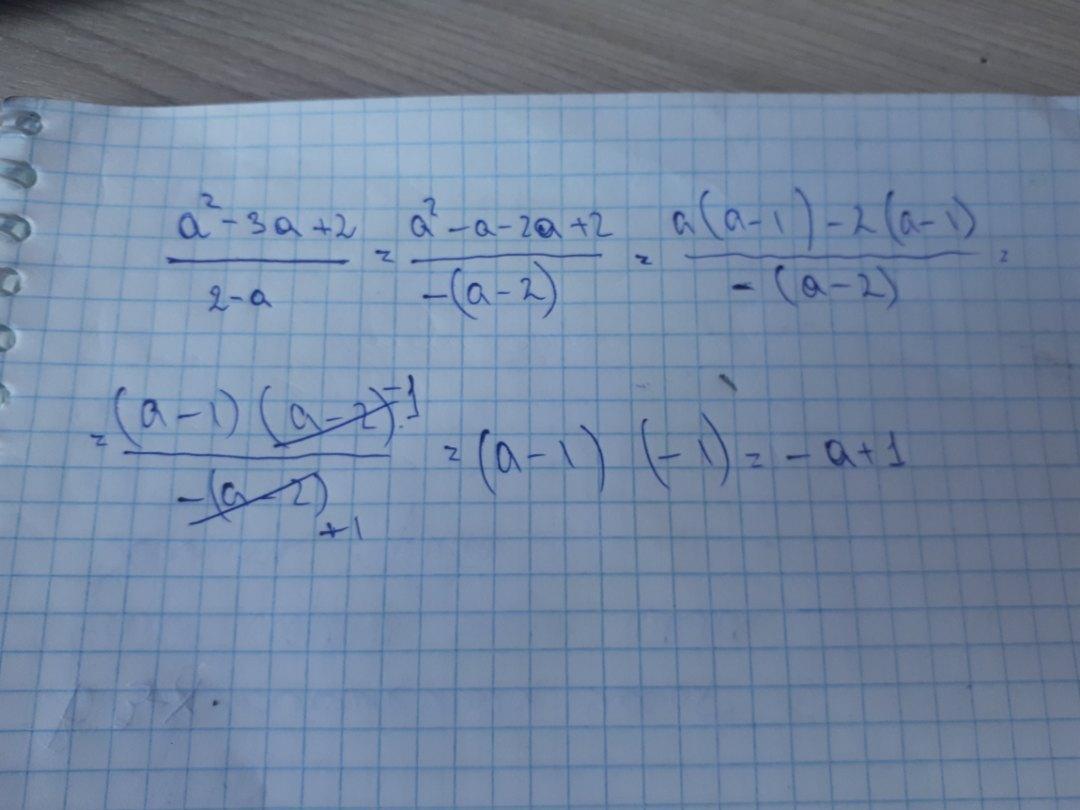 a² - 3a + 2 / 2 - a = a² - a - 2a + 2 / -(a - 2) = a(a - 1) - 2(a - 1) / -(a - 2) =
= (a - 1)(a - 2) -1 / -(a - 2) +1 = (a - 1) (-1) = -a + 1